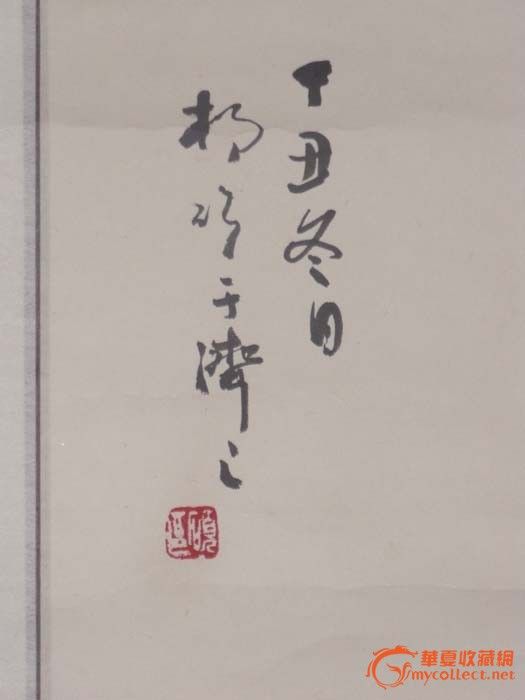 丁丑冬日
杨 于 之
華夏收藏網
mycollect.net